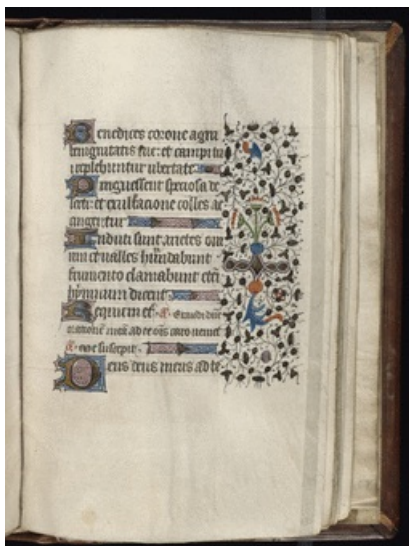 Benedices corone anni
benignitatis tue: et campi tui
replebuntur ubertate
Pinguescent speciosa de
serti: et exultacione colles ac
cingentur
Induti sunt arietes oui
um et ualles habundabunt
frumento clamabunt eteni
hymnum dicent
Requiem et̄. A. Exaudi dn̄e
orationē meā ad te om̄s caro veniet
A. me suscepit
Deus deus meus ad te